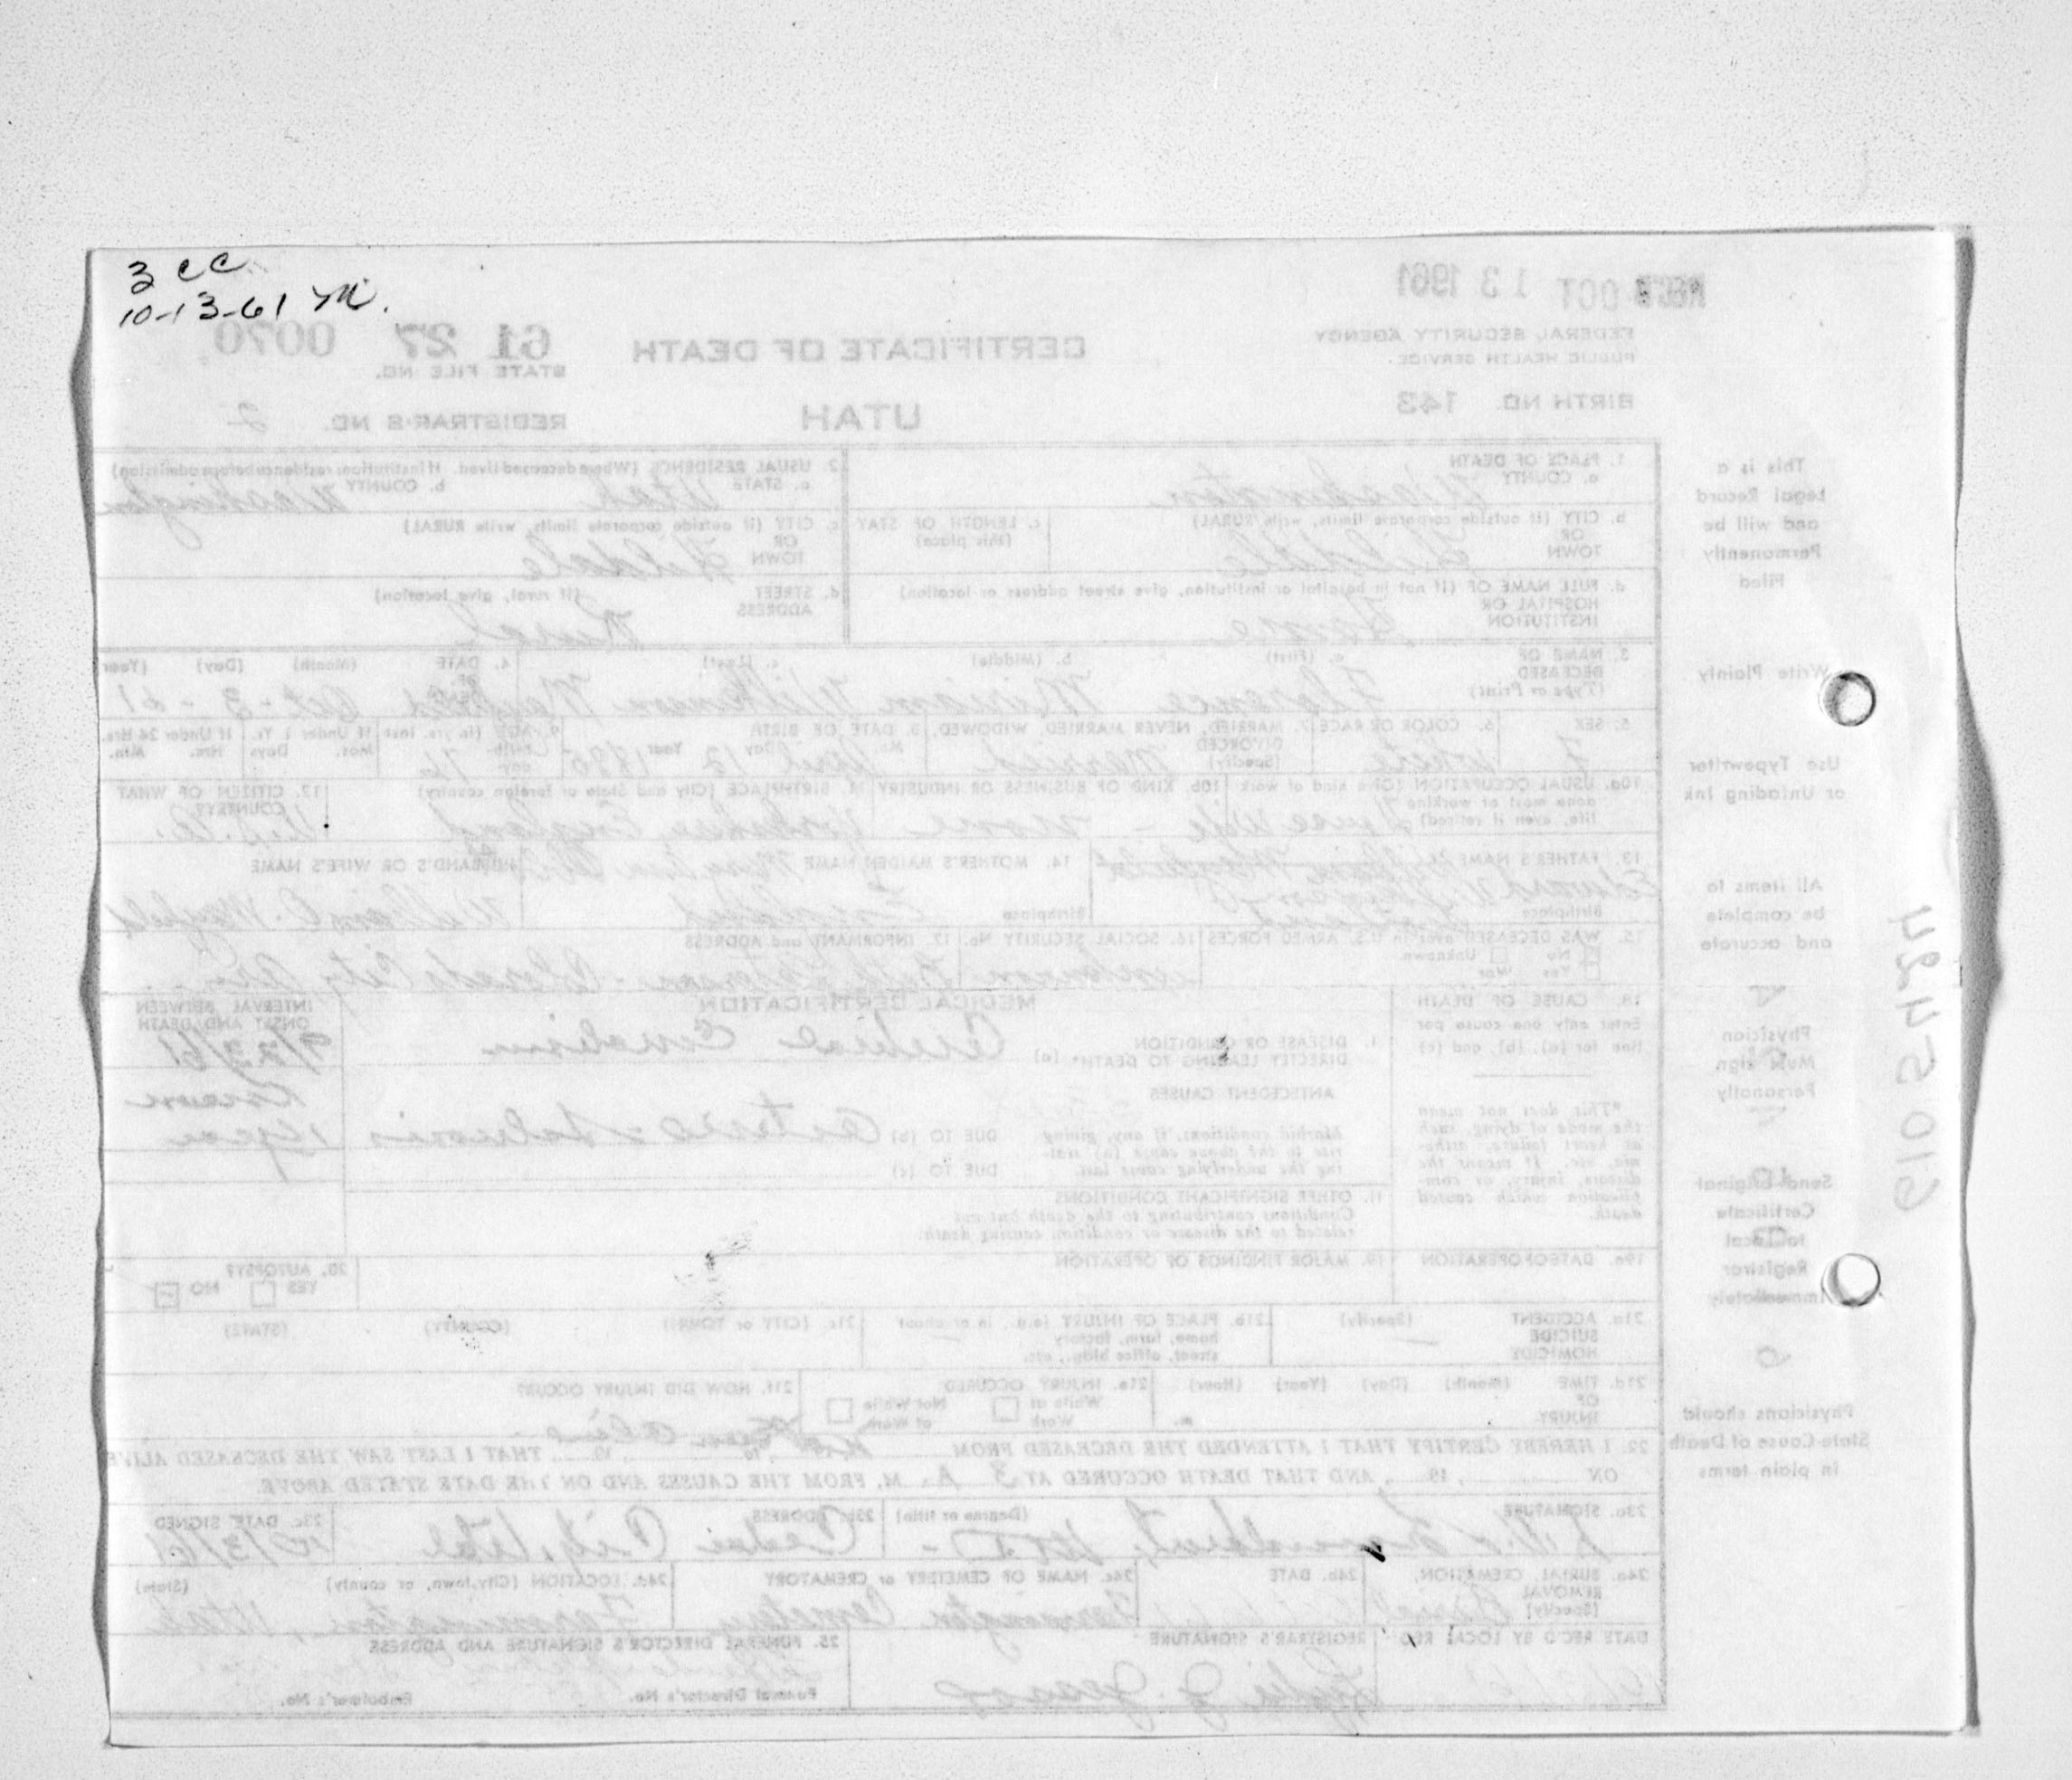 3 cc
10-13-61 m.
REC'D OCT 13 1961
FEDERAL SECURITY AGENCY
PUBLIC HEALTH SERVICE
CERTIFICATE OF DEATH
61 27 0070
STATE FILE NO.
BIRTH NO. 143
UTAH
REGISTRAR'S NO. 2
This is a
Legal Record
and will be
Permanently
Filed
Write Plainly
Use Typewriter
or Unfading Ink
All items to
be complete
and accurate
Physician
Must Sign
Personally
Send Original
Certificate
to Local
Registrar
Immediately
Physicians should
State Cause of Death
in plain terms
1. PLACE OF DEATH
a. COUNTY Washington
2. USUAL RESIDENCE (Where deceased lived. If institution: residence before admission)
a. STATE Utah b. COUNTY Washington
b. CITY (If outside corporate limits, write RURAL)
OR
TOWN Hildale
c. LENGTH OF STAY
(this place)
c. CITY (If outside corporate limits, write RURAL)
OR
TOWN Hildale
d. FULL NAME OF (If not in hospital or institution, give street address or location)
HOSPITAL OR
INSTITUTION Home
d. STREET (If rural, give location)
ADDRESS Rural
3. NAME OF DECEASED (Type or Print)
a. (First) b. (Middle) c. (Last)
Florence Miriam Wilkinson Mayfield
4. DATE OF DEATH (Month) (Day) (Year)
Oct - 3 - 61
5. SEX F
6. COLOR OR RACE White
7. MARRIED, NEVER MARRIED, WIDOWED, DIVORCED (Specify) Married
8. DATE OF BIRTH
Mo. Day Year
April 12 1885
9. AGE (In yrs. last birthday) 76
If Under 1 Yr. Mos. Days
If Under 24 Hrs. Hrs. Min.
10a. USUAL OCCUPATION (Give kind of work done most of working life, even if retired) House Wife
10b. KIND OF BUSINESS OR INDUSTRY none
11. BIRTHPLACE (City and State or foreign country)
Yorkshire, England
12. CITIZEN OF WHAT COUNTRY? U.S.A.
13. FATHER'S NAME
Birthplace
14. MOTHER'S MAIDEN NAME
Birthplace England
HUSBAND'S OR WIFE'S NAME
Mayfield
15. WAS DECEASED ever in U.S. ARMED FORCES
No Unknown
Yes War
16. SOCIAL SECURITY No.
unknown
17. INFORMANT and ADDRESS
Colorado City, Ariz.
MEDICAL CERTIFICATION
18. CAUSE OF DEATH
Enter only one cause per
line for (a), (b), and (c)
*This does not mean
the mode of dying, such
as heart failure, asthenia,
etc. It means the
disease, injury, or complication
which caused
death.
I. DISEASE OR CONDITION
DIRECTLY LEADING TO DEATH* (a) Cerebral Embolism
ANTECEDENT CAUSES
Morbid conditions, if any, giving
rise to the above cause (a) stating
the underlying cause last.
DUE TO (b) Arterio-Sclerosis
DUE TO (c)
INTERVAL BETWEEN
ONSET AND DEATH
9/23/61
II. OTHER SIGNIFICANT CONDITIONS
Conditions contributing to the death but not
related to the disease or condition causing death.
19a. DATE OF OPERATION
19. MAJOR FINDINGS OF OPERATION
20. AUTOPSY?
YES NO
21a. ACCIDENT (Specify)
SUICIDE
HOMICIDE
21b. PLACE OF INJURY (e.g., in or about
home, farm, factory,
street, office bldg., etc.
21c. (CITY or TOWN) (COUNTY) (STATE)
21d. TIME (Month) (Day) (Year) (Hour)
OF
INJURY m.
21e. INJURY OCCURED
While at Work Not While at Work
21f. HOW DID INJURY OCCUR?
22. I HEREBY CERTIFY THAT I ATTENDED THE DECEASED FROM not seen alive, 19 , THAT I LAST SAW THE DECEASED ALIVE
ON , 19 , AND THAT DEATH OCCURED AT 3 A. M, FROM THE CAUSES AND ON THE DATE STATED ABOVE.
23a. SIGNATURE (Degree or title)
23b. ADDRESS Cedar City, Utah
23c. DATE SIGNED 10/3/61
24a. BURIAL, CREMATION,
REMOVAL
(Specify) Burial
24b. DATE
24c. NAME OF CEMETERY or CREMATORY
Farmington Cemetery
24d. LOCATION (City, town, or county) (State)
Farmington, Utah
DATE REC'D BY LOCAL REG.
REGISTRAR'S SIGNATURE
Lydia J. Jessop
25. FUNERAL DIRECTOR'S SIGNATURE AND ADDRESS
Funeral Director's No. Embalmer's No.